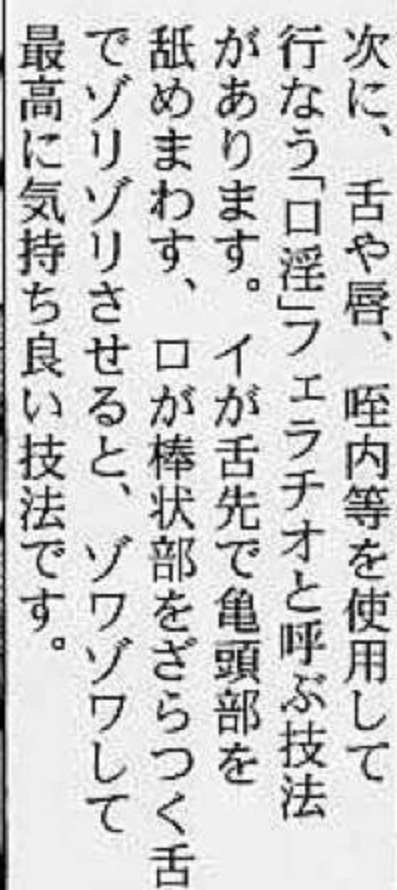 次に、舌や唇、咥内等を使用して
行なう「口淫」フェラチオと呼ぶ技法
があります。イが舌先で亀頭部を
舐めまわす、ロが棒状部をざらつく舌
でゾリゾリさせると、ゾワゾワして
最高に気持ち良い技法です。